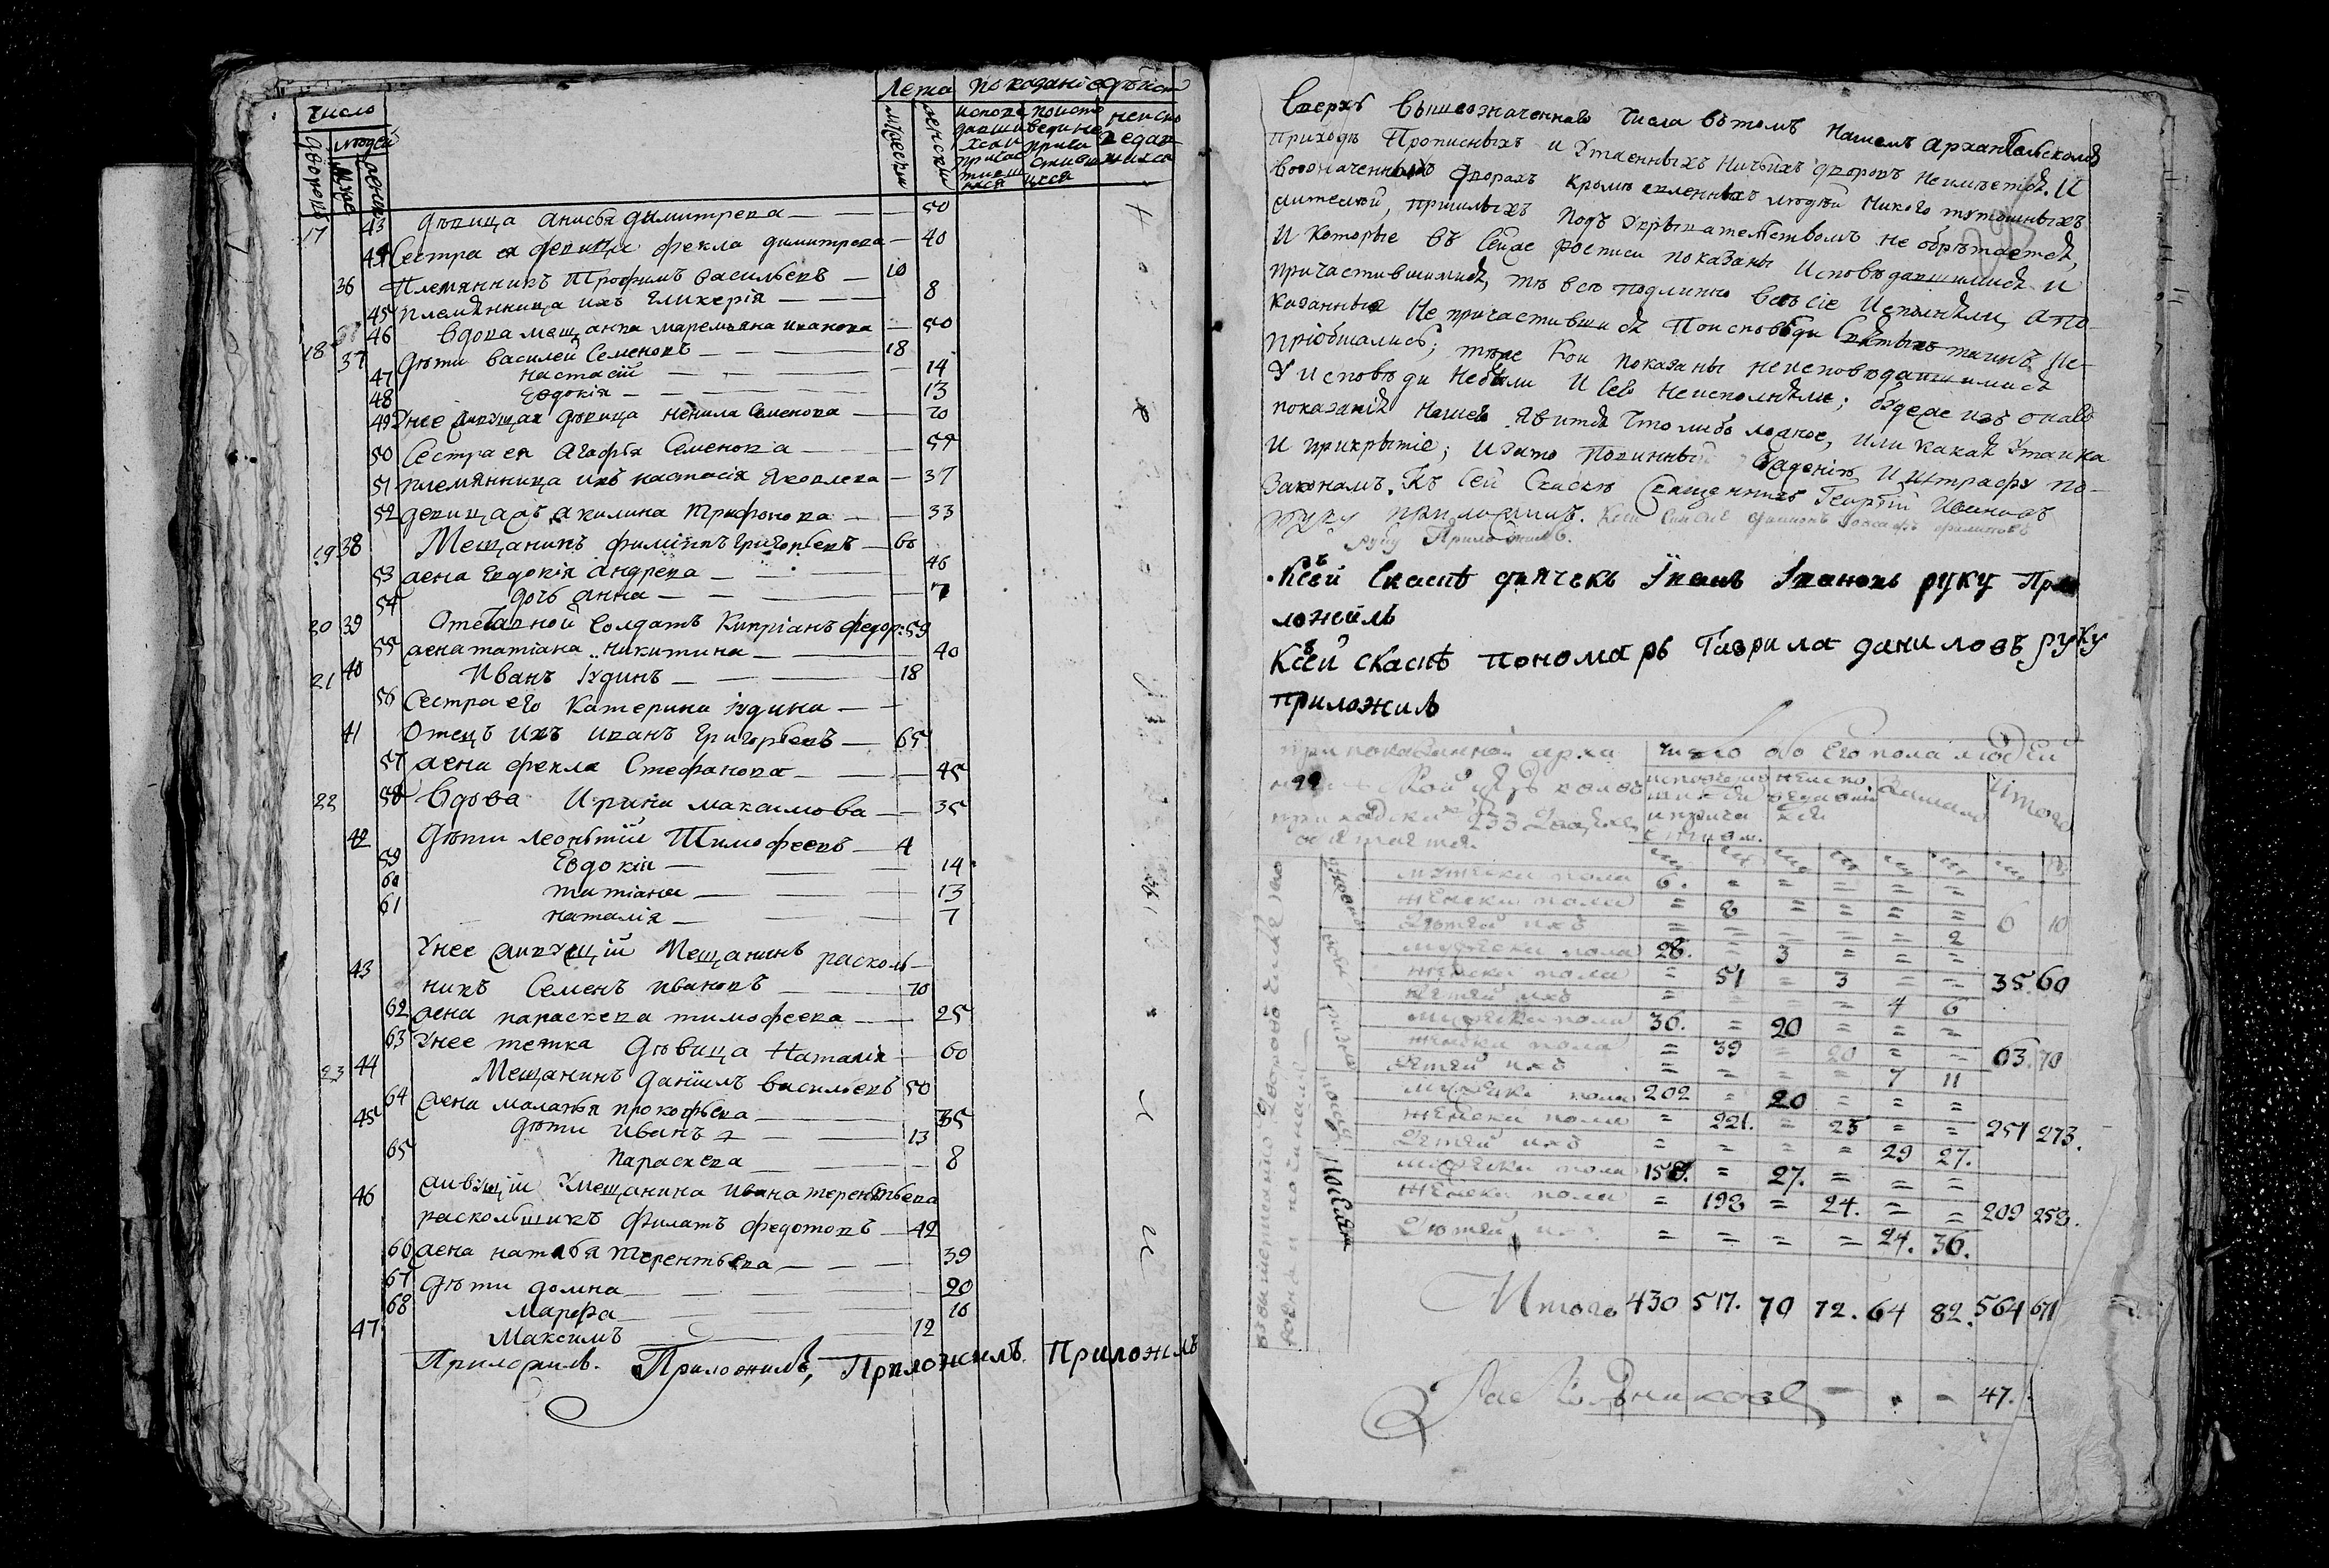 число
дворовъ
людей
муже
женск
Лета
мужески
женски
показаніе дѣйст
испове давши хся и причас тивш ихся
по испо веди не прича стивш ихся
неиспо ведав шихся
17 43 дѣвица анисья димитрева 50
44 Сестра ея девица фекла димитрева 40
36 Племянникъ Трофимъ васильевъ 10
45 племянница ихъ гликерія 8
18 46 вдова мещанка маремьяна иванова 50
37 дѣти василей Семеновъ 18
47 настасіи 14
48 Евдокія 13
49 У нее живущая дѣвица ненила Семенова 70
50 Сестра ея Агафья Семенова 54
51 племянница ихъ настасія Яковлева 37
52 девица акилина Трифонова 33
19 38 Мещанинъ филиппъ григорьевъ
53 жена Евдокія андрева 46
54 дочь анна 7
20 39 Отставной Солдатъ Кипріанъ федор: 59
55 жена татіана никитина 40
21 40 Иванъ Іудинъ 18
56 Сестра его Катерина іудина
41 Отецъ ихъ иванъ григорьевъ 65
57 жена фекла Стефанова 45
22 58 вдова Ирина максимова 35
42 дѣти леонътій Тимофеевъ 4
59 Евдокіи 14
60 татіана 13
61 наталія 7
43 У нее живущій Мещанинъ расколь-
никъ Семенъ ивановъ 70
62 жена параскева тимофеева 25
63 У нее тетка дѣвица Наталія 60
23 44 Мещанинъ даніилъ васильевъ 50
64 жена маланья прокофьева 35
45 дѣти иванъ 13
65 параскева 8
46 живущіи у мещанина ивана терентьева
раскольщикъ филатъ федотовъ 42
66 жена наталья терентьева 39
67 дѣти домна 20
68 марфа 16
47 Максимъ 12
Приложилъ. Приложилъ, Приложилъ Приложилъ
Сверхъ вышеозначеннаго числа въ томъ нашемъ архангельскомъ
приходѣ прописныхъ и утаенныхъ ничьихъ дворовъ неимѣется. И
въ означенныхъ дворахъ кромѣ явленныхъ людей никого тутошныхъ
жителей, пришлыхъ подъ укрывательствомъ не обрѣтается,
и которые въ сей же росписи показаны исповѣдавшимися и
причастившимися, тѣ всѣ подлинно всѣ сіе исполнили, а по-
казанныя не причастившися по исповѣди святыхъ таинъ не-
пріобщались; тѣже кои показаны неисповѣдавшимися
у исповѣди небыли и сего неисполнили; буде же изъ онаго
показанія нашего явится что либо ложное, или какая утайка
и прикрытіе; и зато повинны и штрафу по-
законамъ. Къ сей сказкѣ священникъ Георгій Ивановъ
руку приложилъ.
руку Приложилъ.
Ксей скаскѣ дьячекъ Іванъ Івановъ руку При
ложилъ
Ксей скаскѣ пономарь Гаврила даниловъ руку
приложилъ
при показанной арха
приходскихъ 233 двор
число обоего пола людей
исповеда вшихся и прича стивш.
неиспо ведавши хся
Итого
мужеска пола 6. = = = = =
женска пола = 8 = = = = 6 10
Дѣтей ихъ = = = = = 2
мужеска пола 28. = 3 = = =
женска пола = 51 = 3 = = 35. 60
дѣтей ихъ = = = = 4 6
мужеска пола 36. = 20 = = =
женска пола = 39 = 20 = = 63. 70
дѣтей ихъ = = = = 7 11
мужеска пола 202 = 20 = = =
женска пола = 221. = 25 = = 251 273.
дѣтей ихъ = = = = 29 27.
мужеска пола 158. = 27. = = =
женска пола = 198 = 24. = = 209 258.
Дѣтей ихъ = = = = 24. 36.
Итого 430 517. 70 72. 64 82. 564 671
Раскольниковъ 47.